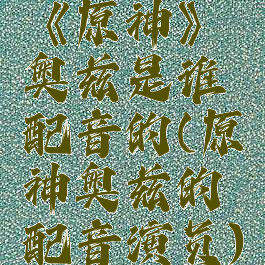 《原神》
奥兹是谁
配音的(原
神奥兹的
配音演员)